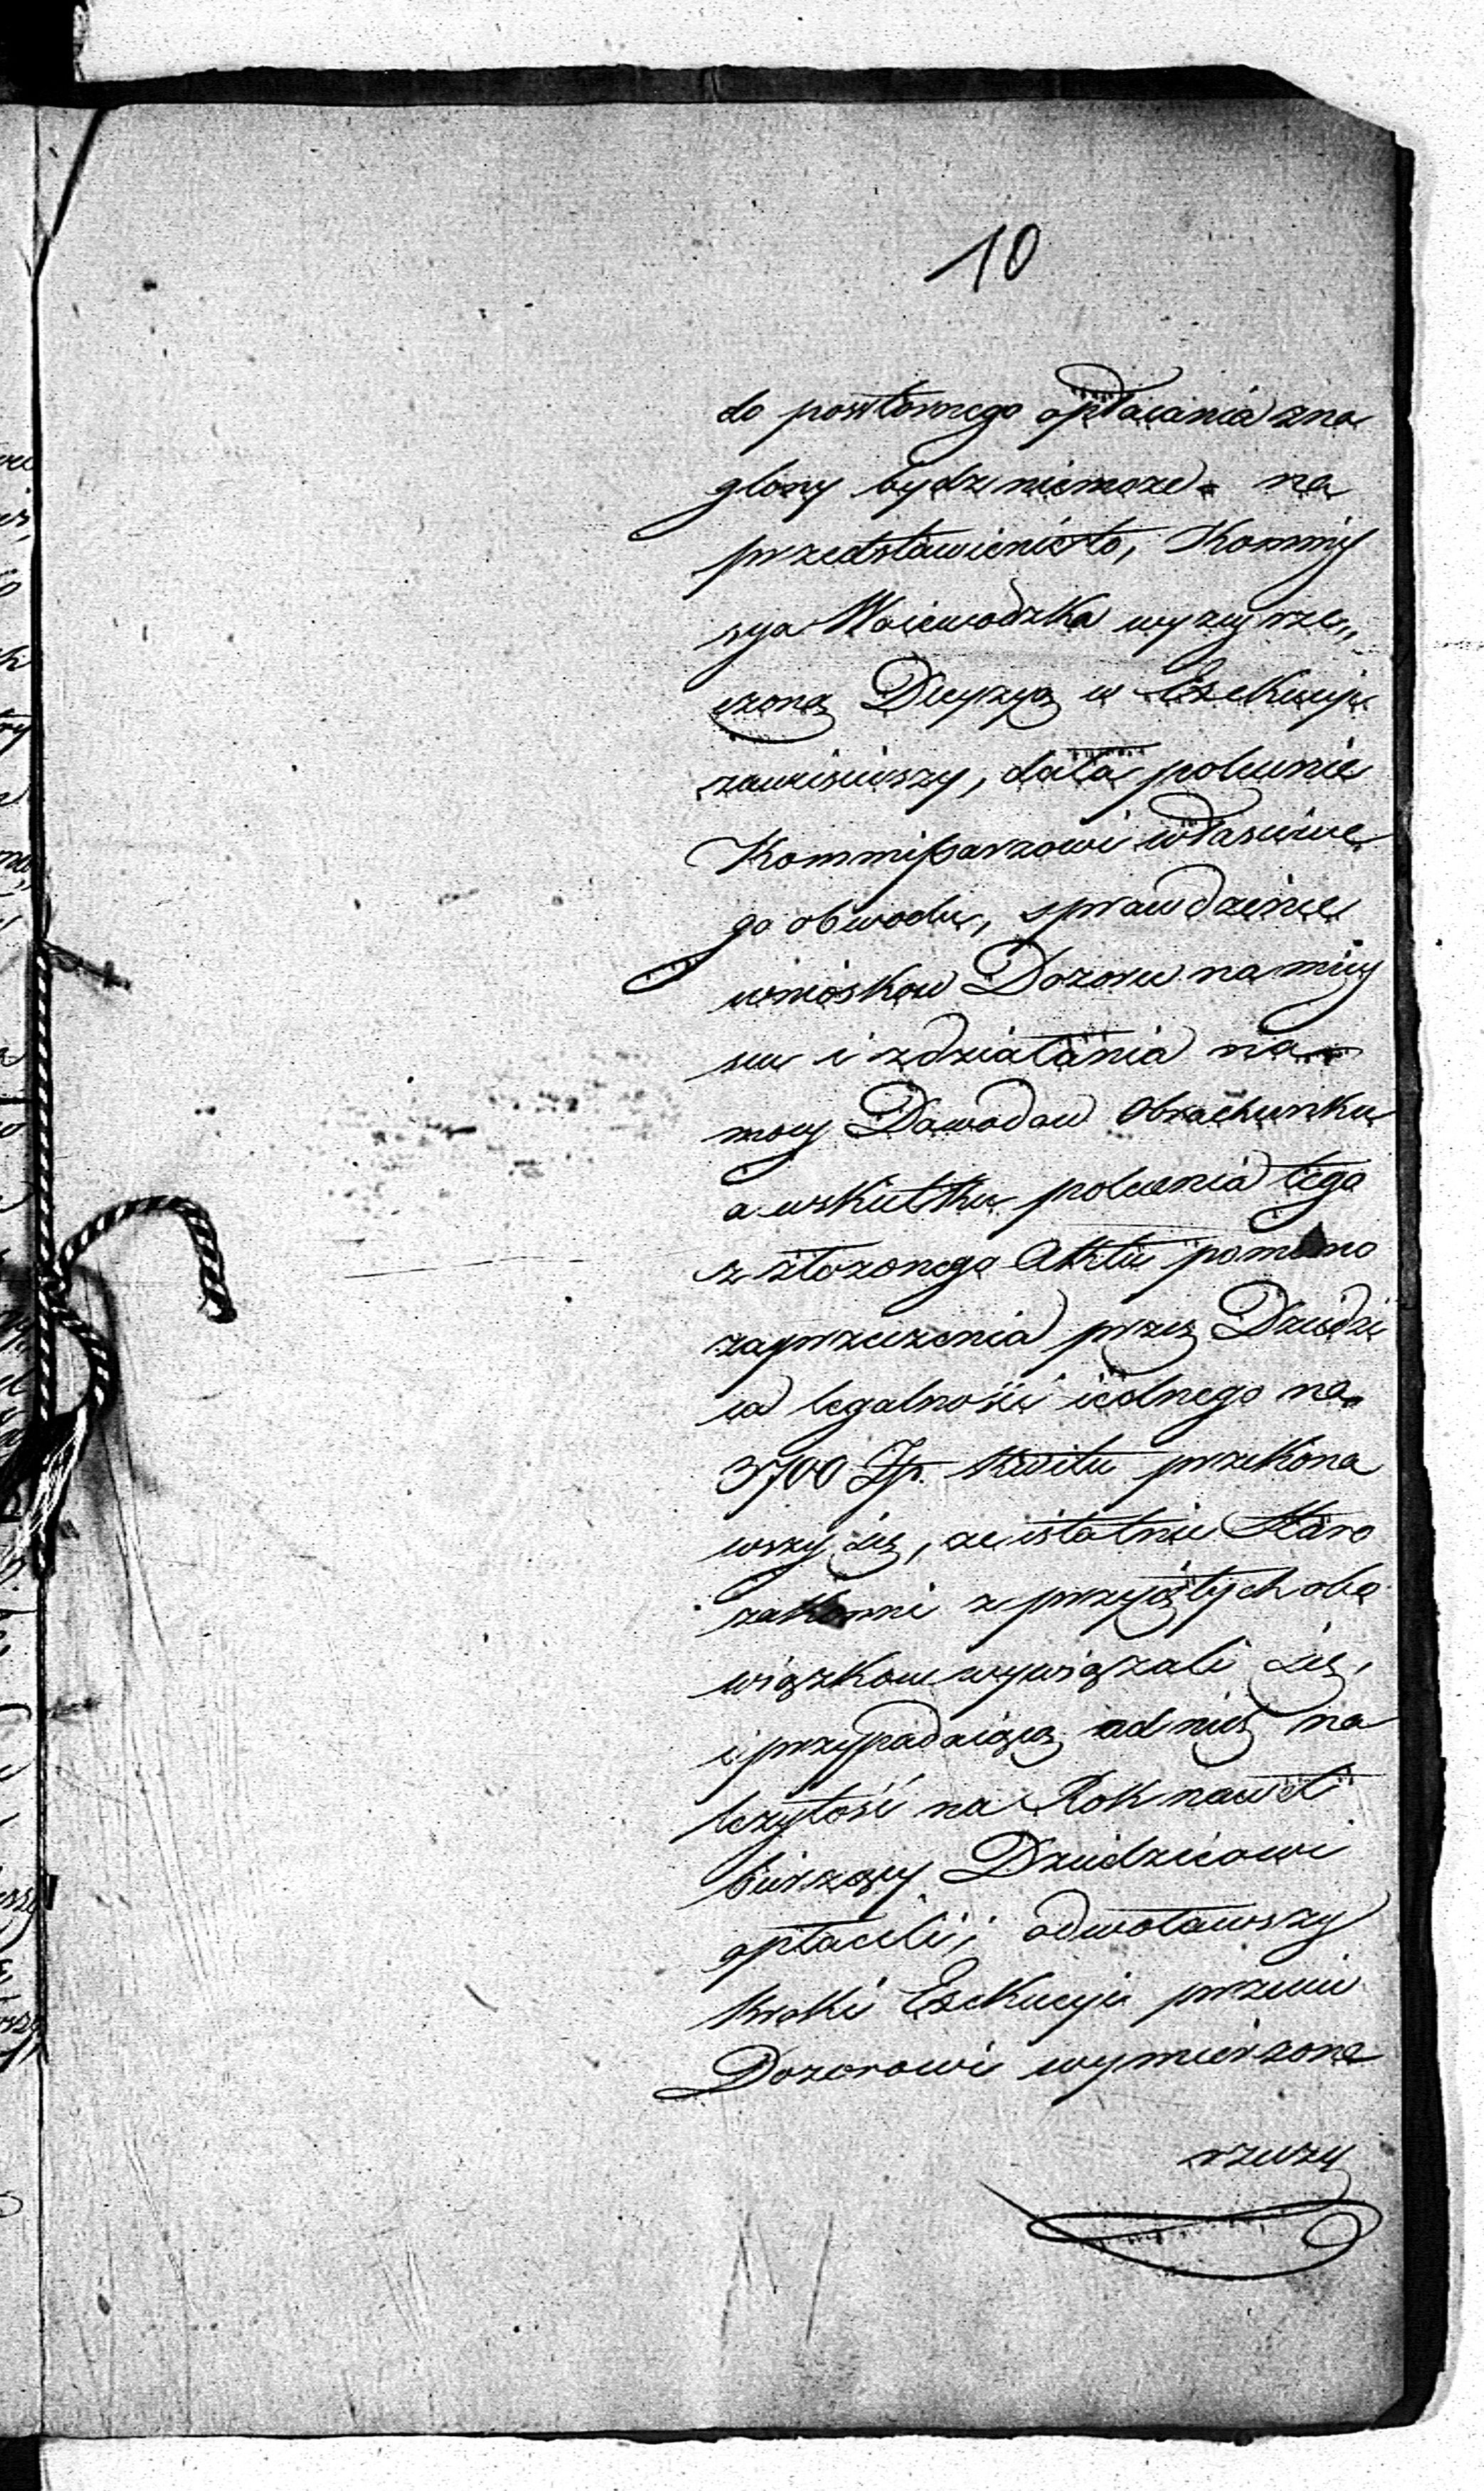 10
do powtornego opłacania zna
glony bydz niemoze. na
przedstawienie to, Kommis
sya Woiewodzka wyzey rze„
czoną Decyzyą w Exekucyi
zawiesiwszy, dała polecenie
Kommissarzowi właściwe
go obwodu, sprawdzenie
wniosków Dozoru na miey
scu i zdziałania na
mocy Dowodow Obrachunku
a wskutku polecenia tego
z złozonego Aktu pomimo
zaprzeczenia przez Dziedzi
ca legalności iednego na
3700 Zp. Kwitu przekona
wszy się, ze istotnie Staro
zakonni z przyiętych obo
wiązkow wywiązali się,
i przypadaiącą od nich na
lezytość na Rok nawet
bieżący Dziedzicowi
opłacili; odwoławszy
kroki Exekucyi przeciw
Dozorowi wymierzone
rzeczy